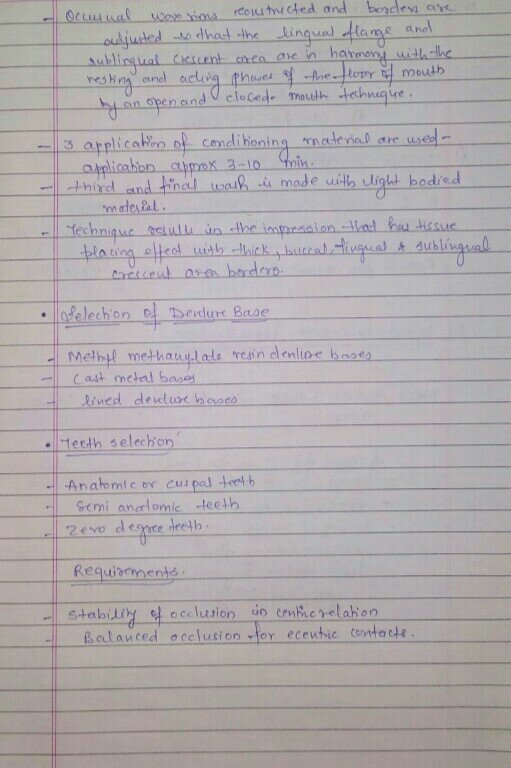 - Occlusal wax rims reconstructed and borders are
adjusted so that the lingual flange and
sublingual crescent area are in harmony with the
resting and acting phases of the floor of mouth
by an open and closed-mouth technique.
- 3 application of conditioning material are used -
application approx 3-10 min.
- third and final wash is made with light bodied
material.
- Technique results in the impression that has tissue
placing effect with thick, buccal, lingual & sublingual
crescent area borders.
• Selection of Denture Base
- Methyl methacrylate resin denture bases
- Cast metal bases
- lined denture bases
• Teeth selection
- Anatomic or cuspal teeth
- Semi anatomic teeth
- Zero degree teeth.
Requirements.
- Stability of occlusion in centric relation
- Balanced occlusion for ecentric contacts.